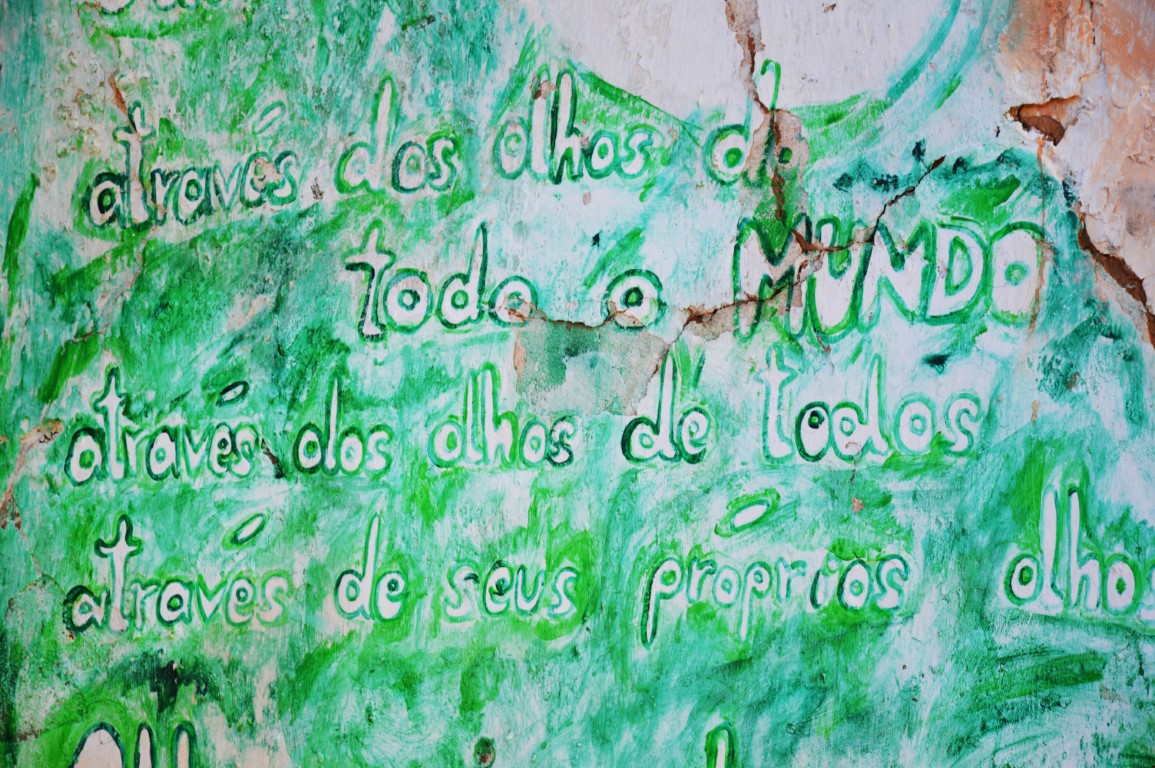 através dos olhos d
todo o MUNDO
através dos olhos de todos
através de seus próprios olhos